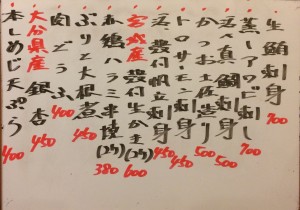 生鯛刺身 900
蒸しアワビ刺し 700
活〆真鯛刺身 500
かつお土佐造り 500
トロサーモン刺身 450
活〆殻付帆立刺し 450
宮城産 殻付生かき(2ケ) 600
赤鶏ハラミ串焼(2ケ) 380
ぶりと大根煮 450
肉どうふ 400
大分県産 銀杏 450
本しめじ天ぷら 400